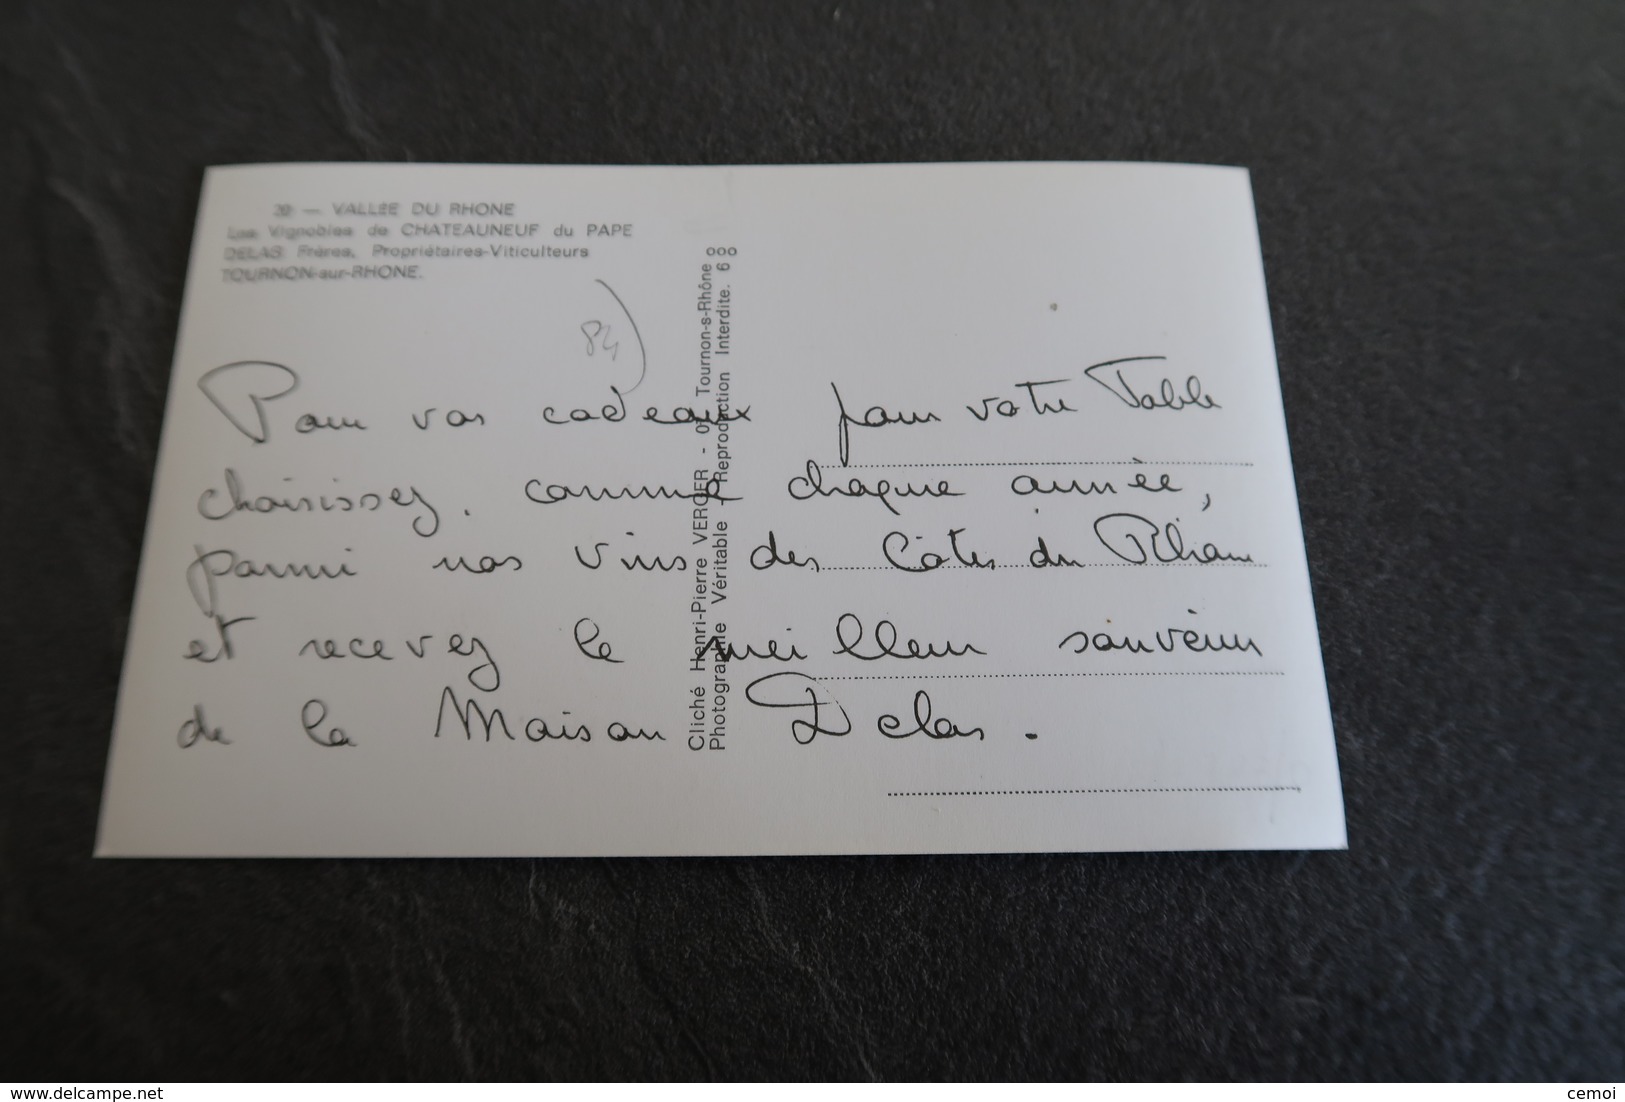 20 — VALLÉE DU RHONE
Les Vignobles de CHATEAUNEUF du PAPE
DELAS Frères, Propriétaires-Viticulteurs
TOURNON-sur-RHONE.
84
Pour vos cadeaux pour votre Table
choisissez, comme chaque année,
parmi nos vins des Côtes du Rhône
et recevez le meilleur souvenir
de la Maison Delas.
Cliché Henri-Pierre VERGIER - 07 Tournon-s-Rhône
Photographie Véritable - Reproduction Interdite. 6
www.delcampe.net
cemoi